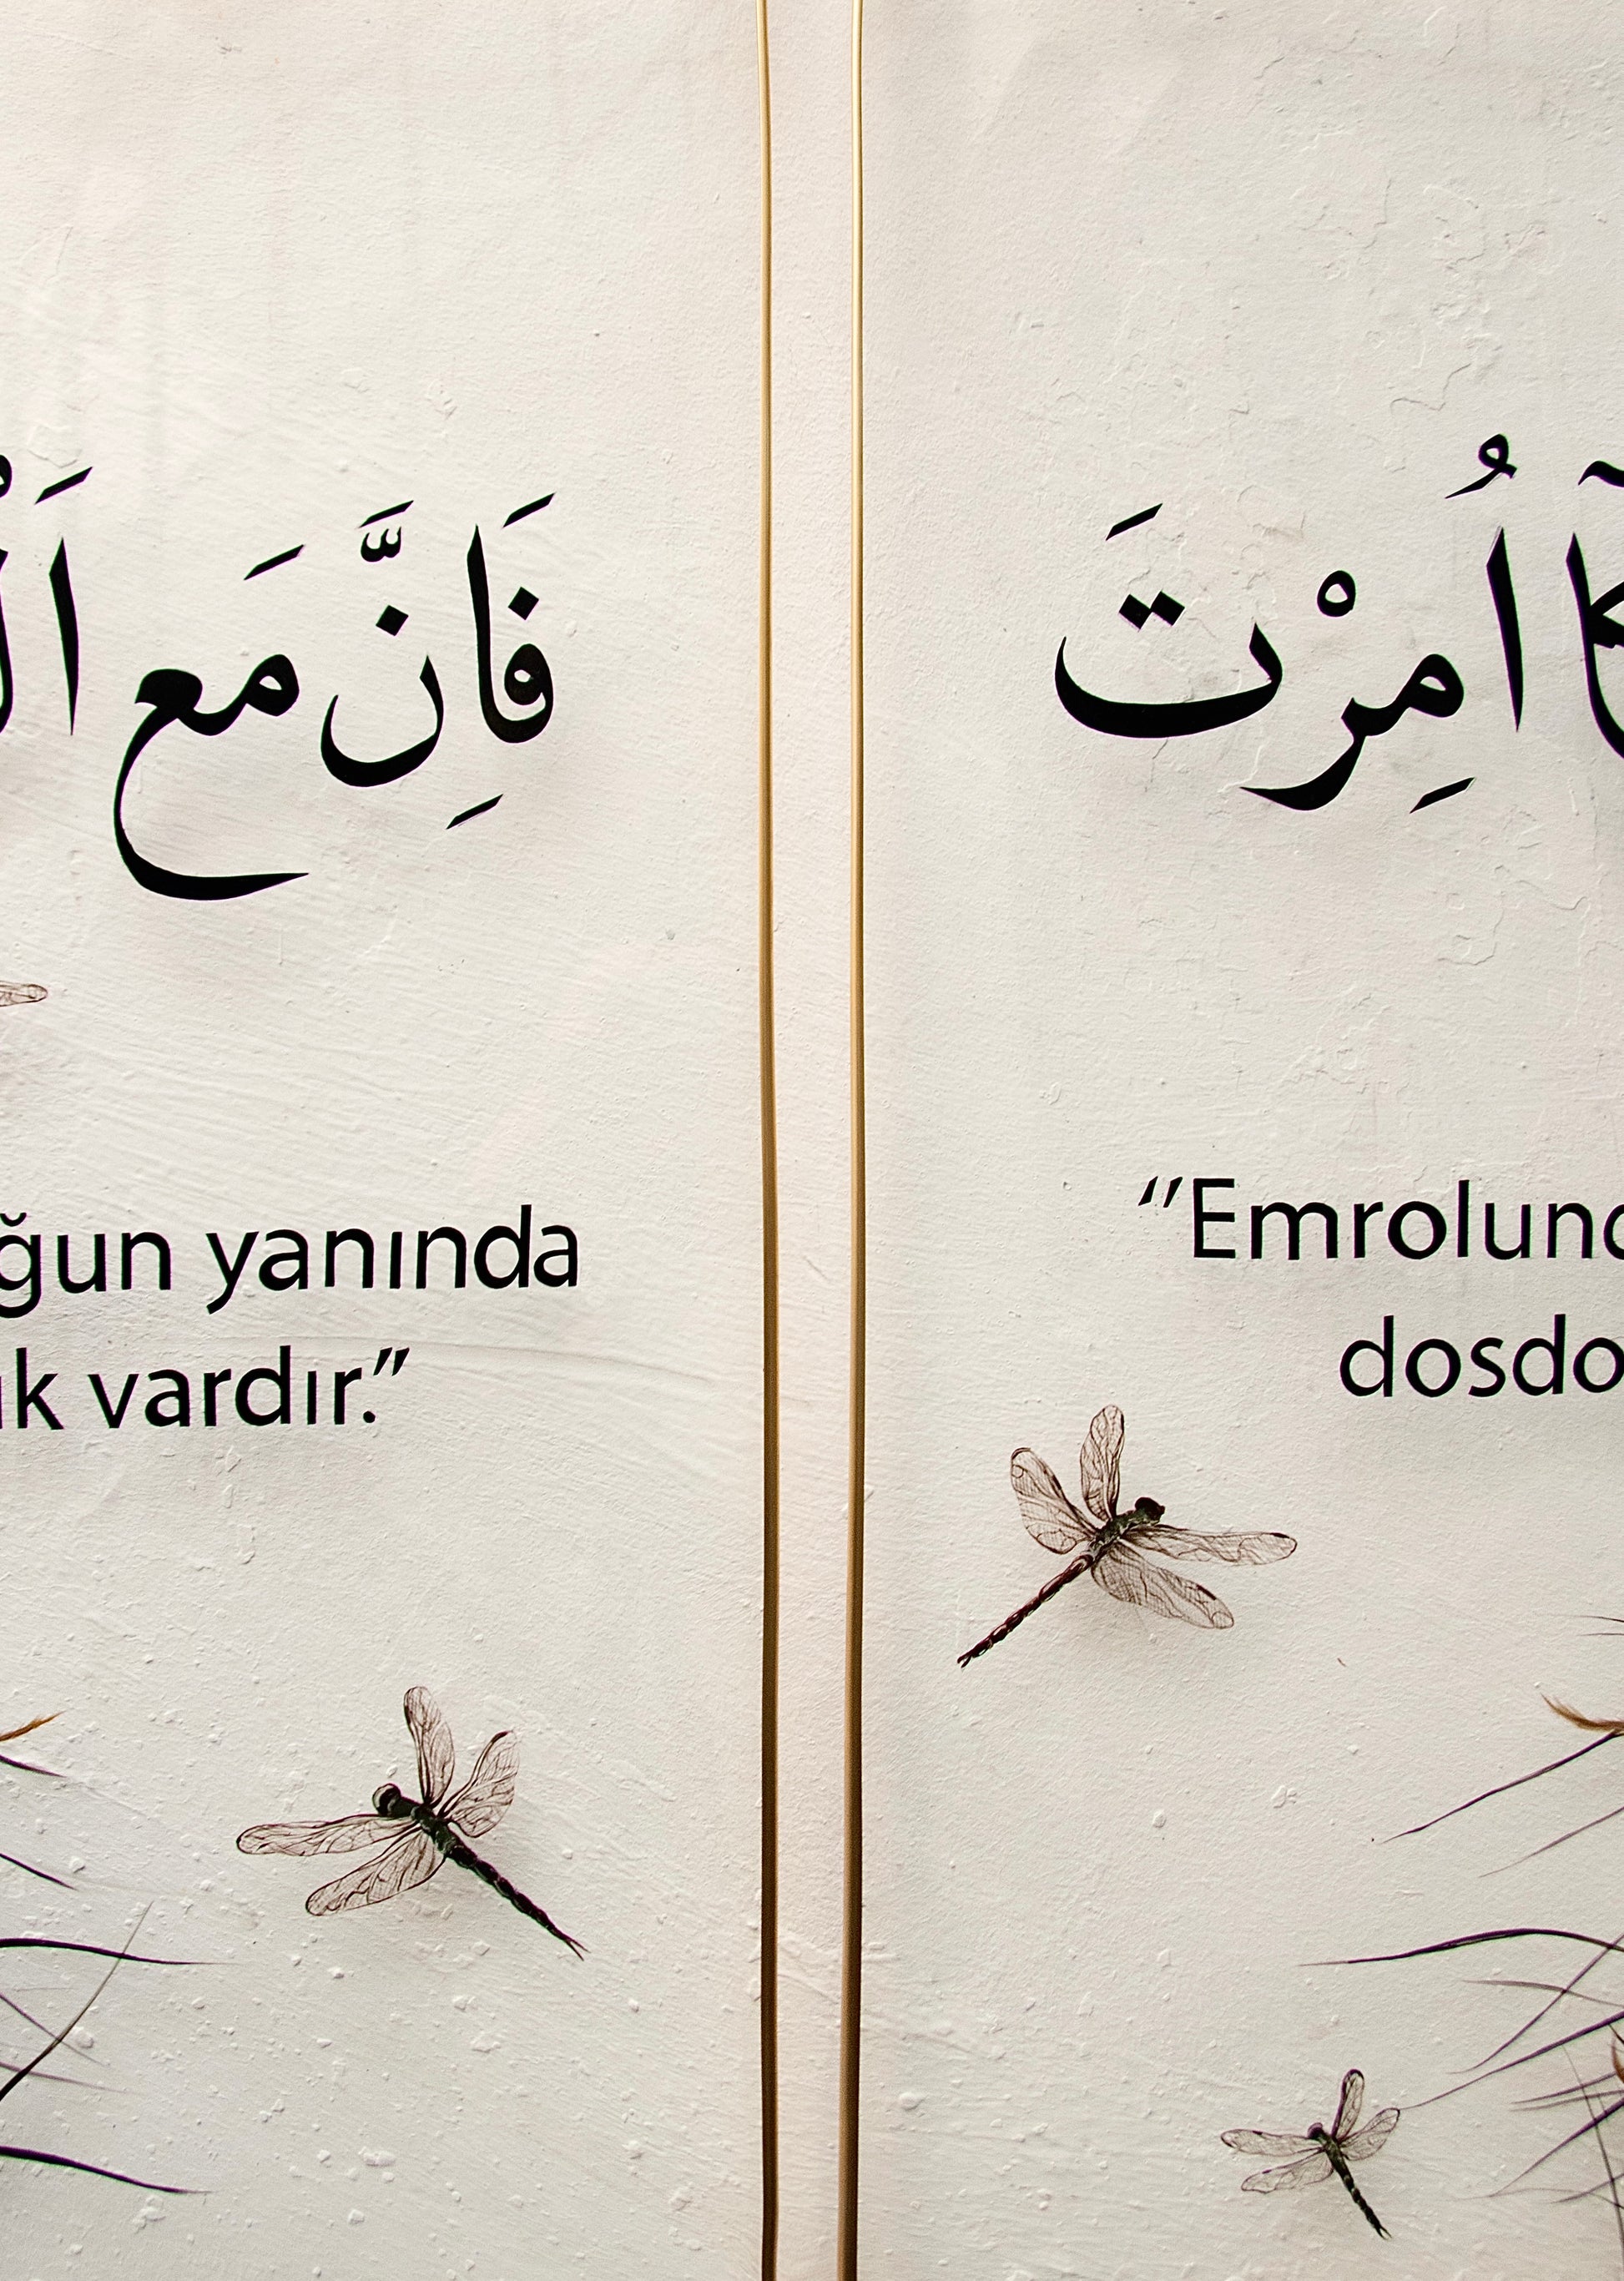 فَاِنَّ مَعَ
ğun yanında
ık vardır.”
اُمِرْتَ
“Emrolund
dosdo